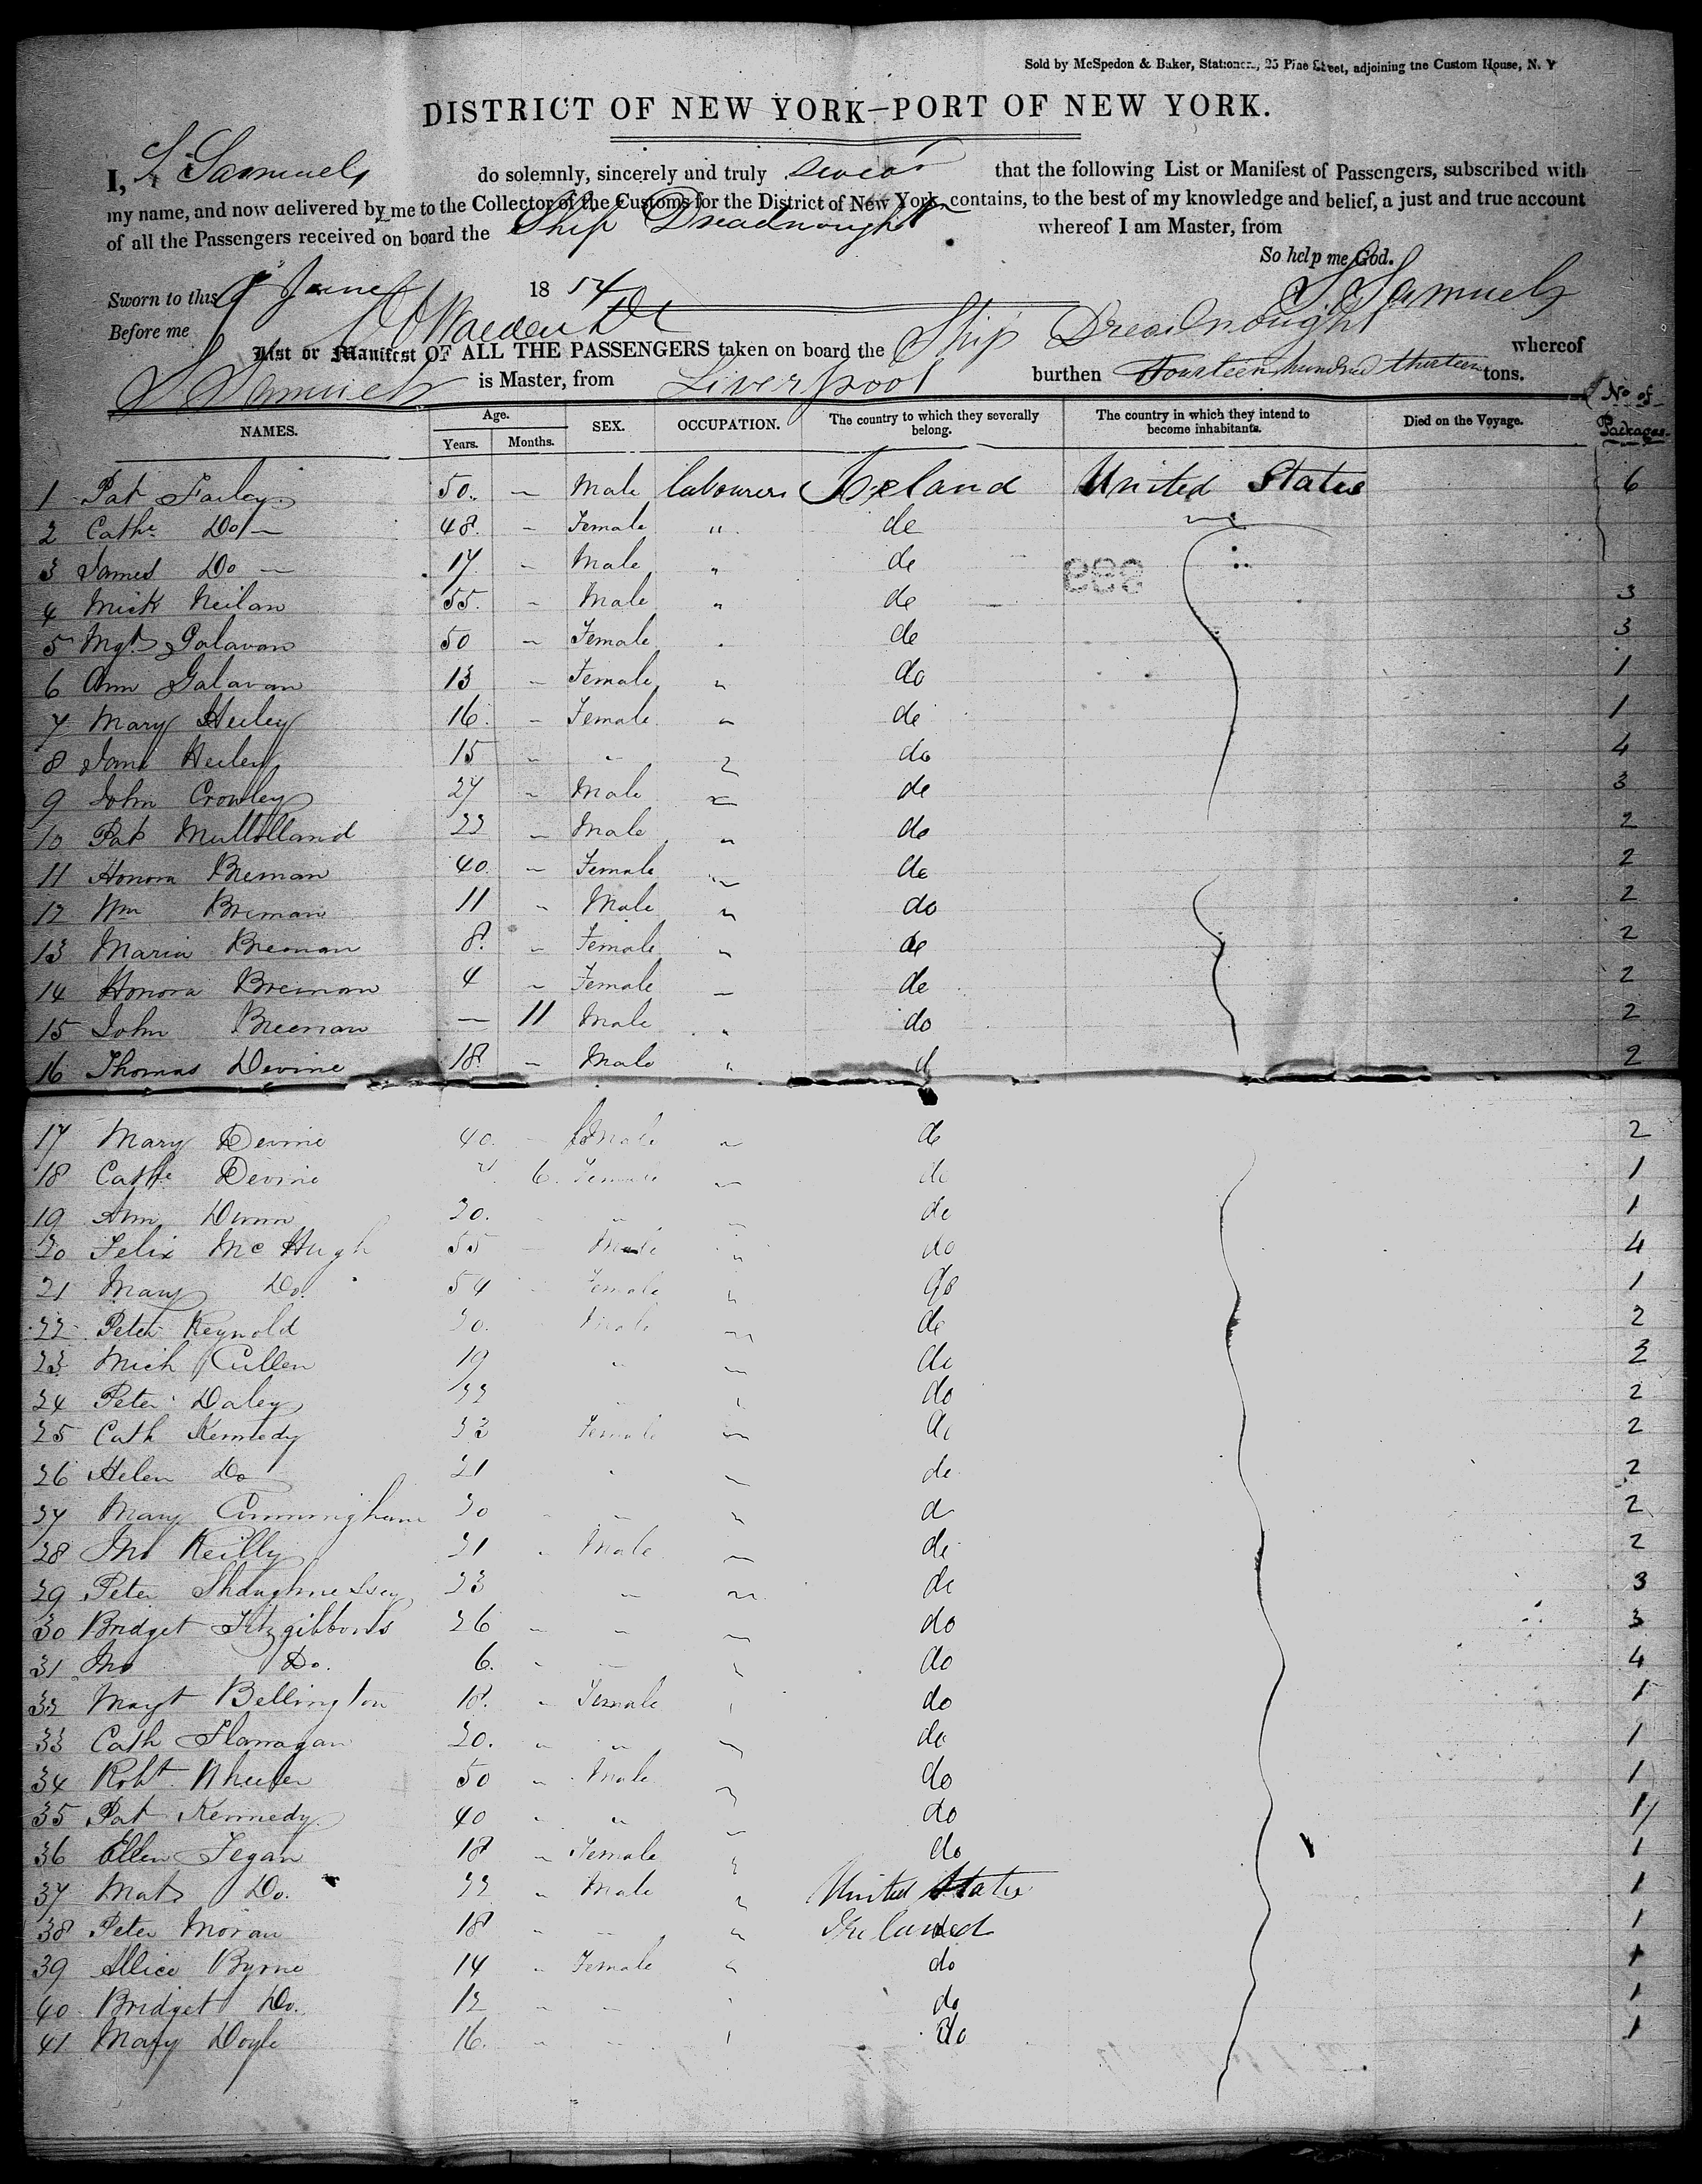 Sold by McSpedon & Baker, Stationers, 25 Pine Street, adjoining the Custom House, N. Y
DISTRICT OF NEW YORK—PORT OF NEW YORK.
I, S. Samuels do solemnly, sincerely and truly swear that the following List or Manifest of Passengers, subscribed with
my name, and now delivered by me to the Collector of the Customs for the District of New York, contains, to the best of my knowledge and belief, a just and true account
of all the Passengers received on board the Ship Dreadnought whereof I am Master, from
So help me God.
Sworn to this 9 June 1854 S Samuels
Before me
List or Manifest OF ALL THE PASSENGERS taken on board the Ship Dreadnought whereof
S Samuels is Master, from Liverpool burthen Fourteen hundred thirteen tons.
NAMES. Age. Years. Months. SEX. OCCUPATION. The country to which they severally belong. The country in which they intend to become inhabitants. Died on the Voyage. No of Packages
1 Pat Farley 50. – Male labourers Ireland United States 6
2 Cathe Do — 48. – Female " do
3 James Do — 17 – Male " do
4 Mick Neilan 55. – Male " do 3
5 Mgt Galavan 50 – Female " do 3
6 Ann Galavan 13 – Female " do 1
7 Mary Heiley 16. – Female " do 1
8 Jane Heiley 15 – " " do 4
9 John Crowley 27 – Male " do 3
10 Pat Mullolland 22 – Male " do 2
11 Honora Brennan 40. – Female " do 2
12 Wm Brennan 11 " Male " do 2
13 Maria Brennan 8. – Female " do 2
14 Honora Brennan 4 – Female " do 2
15 John Brennan — 11 Male " do 2
16 Thomas Devine 18. – Male " d 2
17 Mary Devine 40. – Female " do 2
18 Cathe Devine " 6. Female " do 1
19 Ann Dunn 20. " " do 1
20 Felix McHugh 55 – Male " do 4
21 Mary Do. 54 Female " do 1
22 Peter Reynold 20. Male " do 2
23 Mich Cullen 19 " " do 2
24 Peter Daley 22 " do 2
25 Cath Kennedy 23 Female " do 2
26 Helen Do 21 " " do 2
27 Mary Cunningham 20 " " do 2
28 Jno Reilly 21 " Male " do 2
29 Peter Shaughnessey 23 " " do 3
30 Bridget Fitzgibbons 26 – " " do 3
31 Jno Do. 6. " " " do 4
32 Margt Bellington 18. " Female " do 1
33 Cath Flanagan 20. " " " do 1
34 Robt Wheeler 50 " Male " do 1
35 Pat Kennedy 40 " " " do 1
36 Ellen Fegan 18 " Female " do 1
37 Mat Do. 22 " Male " United States 1
38 Peter Moran 18 " " " Ireland 1
39 Allice Byrne 14 " Female " do 1
40 Bridget Do. 12 " " " do 1
41 Mary Doyle 16. " " " do 1